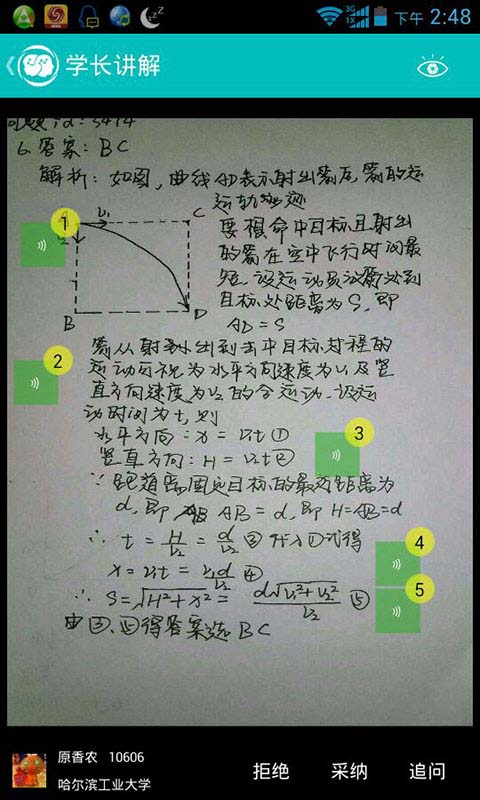 3G
1X
下午 2:48
学长讲解
6. 答案: BC
解析: 如图, 曲线AD表示射出箭后, 箭的运
运动轨迹
1
V₁
C
B
D
要想命中目标且射出
的箭在空中飞行时间最
短. 设运动员放箭处到
目标处距离为S, 即
AD = S
2
箭从射出到击中目标过程的
运动可视为水平方向速度为V₁及竖
直方向速度为V₂的合运动. 设运
动时间为t, 则
水平方向: x = V₁t ①
3
竖直方向: H = V₂t ②
∵ 跑道离固定目标的最近距离为
d, 即 AB = d, 即 H=AB=d
∴ t = H/V₂ = d/V₂ ③ 代入①式得
4
x = V₁t = V₁d/V₂ ④
∴ S = √(H²+x²) = d√(V₁²+V₂²)/V₂ ⑤
5
由③、⑤得答案选 BC
原香农 10606
哈尔滨工业大学
拒绝 采纳 追问